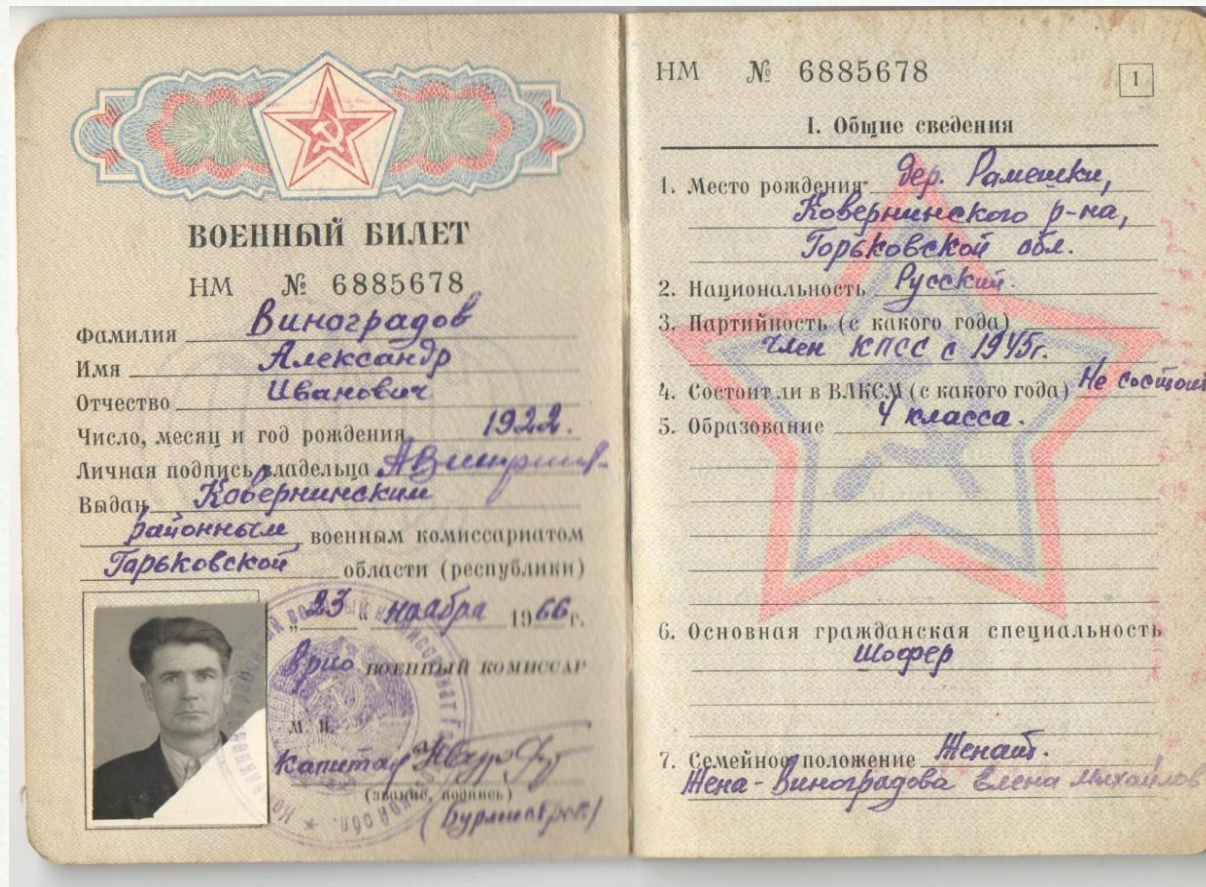 ВОЕННЫЙ БИЛЕТ
НМ № 6885678
Фамилия Виноградов
Имя Александр
Отчество Иванович
Число, месяц и год рождения 1922.
Личная подпись владельца
Выдан Ковернинским
районным военным комиссариатом
Горьковской области (республики)
„23“ ноября 1966 г.
Врио военный комиссар
М. П.
капитан
(звание, подпись)
НМ № 6885678
1
I. Общие сведения
1. Место рождения дер. Рамешки,
Ковернинского р-на,
Горьковской обл.
2. Национальность Русский.
3. Партийность (с какого года)
член КПСС с 1945г.
4. Состоит ли в ВЛКСМ (с какого года) Не состоит
5. Образование 4 класса.
6. Основная гражданская специальность
Шофер
7. Семейное положение Женат.
Жена - Виноградова Елена Михайлов